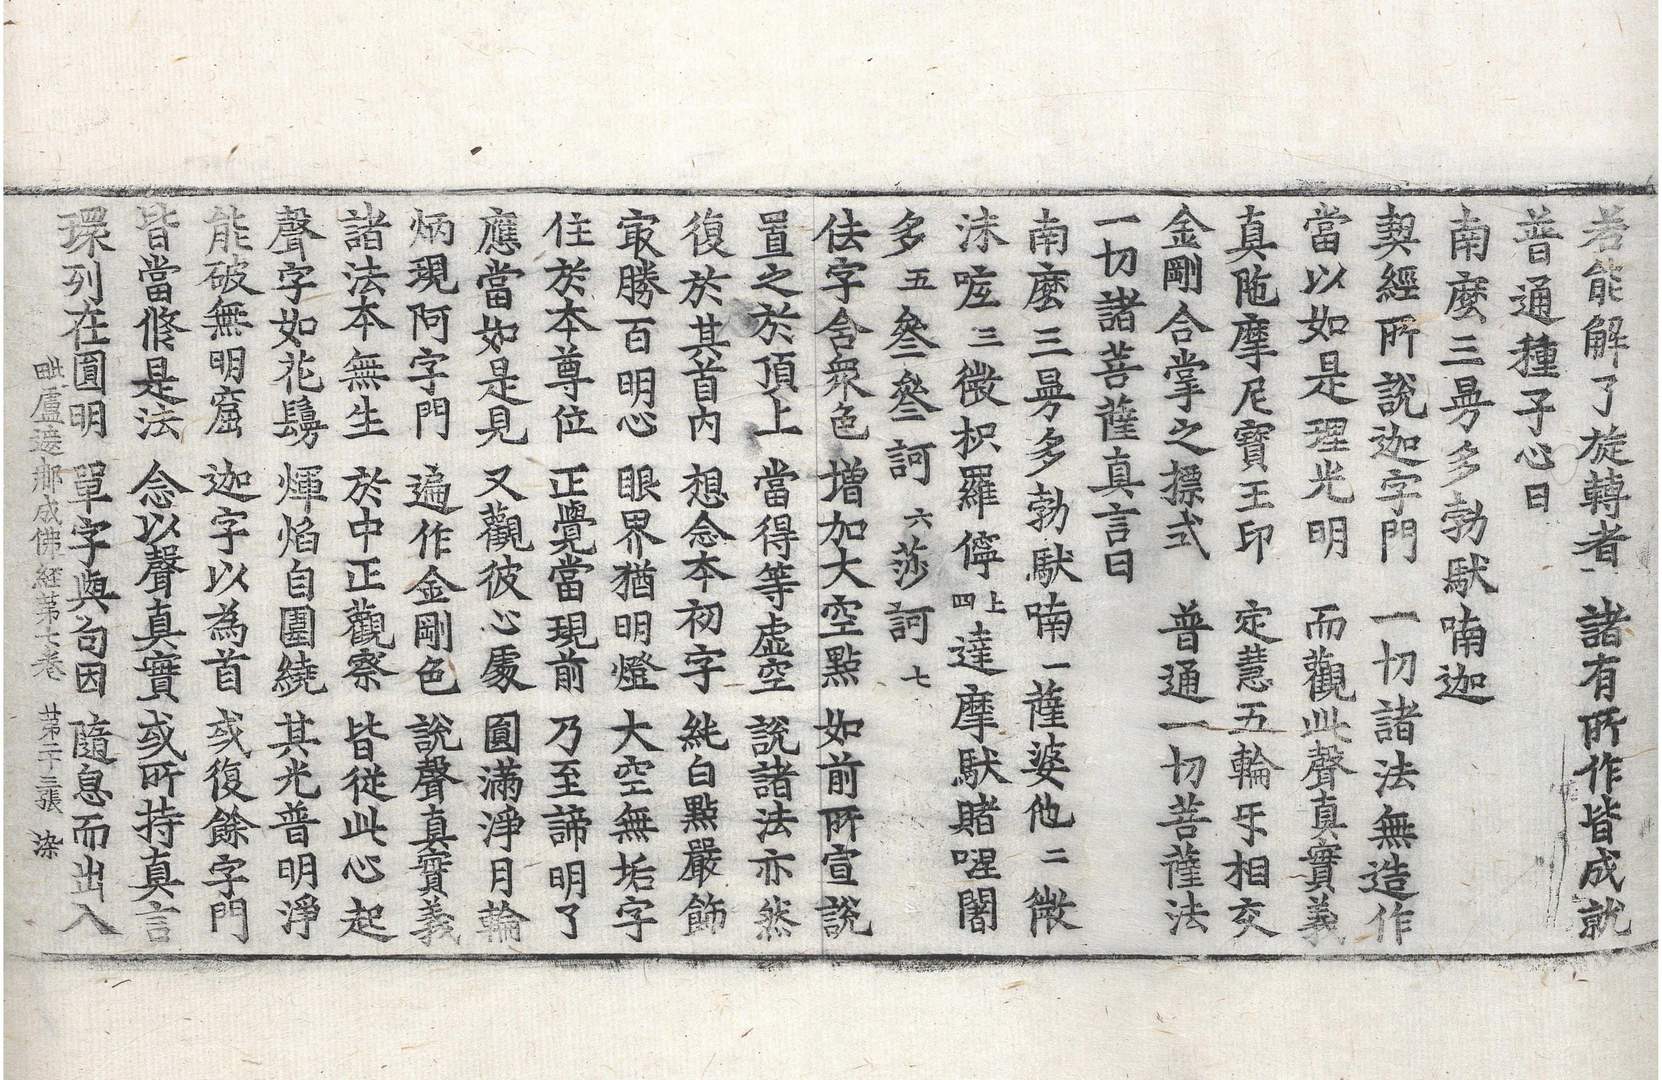 若能解了旋轉者 諸有所作皆成就
普通種子心曰
南麽三曼多勃馱喃迦
契經所說迦字門 一切諸法無造作
當以如是理光明 而觀此聲真實義
真陁摩尼寶王印 定慧五輪㸦相交
金剛合掌之摽式 普通一切菩薩法
一切諸菩薩真言曰
南麽三曼多勃馱喃一薩婆他二微
沫㗌三微枳羅儜上四達摩馱賭𠷐闍
多五參參訶六莎訶七
佉字含衆色 增加大空點 如前所宣說
置之於頂上 當得等虛空 說諸法亦然
復於其首內 想念本初字 純白點嚴飾
㝡勝百明心 眼界猶明燈 大空無垢字
住於本尊位 正覺當現前 乃至諦明了
應當如是見 又觀彼心處 圓滿淨月輪
炳現阿字門 遍作金剛色 說聲真實義
諸法本無生 於中正觀察 皆從此心起
聲字如花鬘 煇焰自圍繞 其光普明淨
能破無明窟 迦字以為首 或復餘字門
皆當修是法 念以聲真實 或所持真言
環列在圓明 單字與句因 隨息而出入
毗盧遮那成佛經第七卷 第二十三張 染